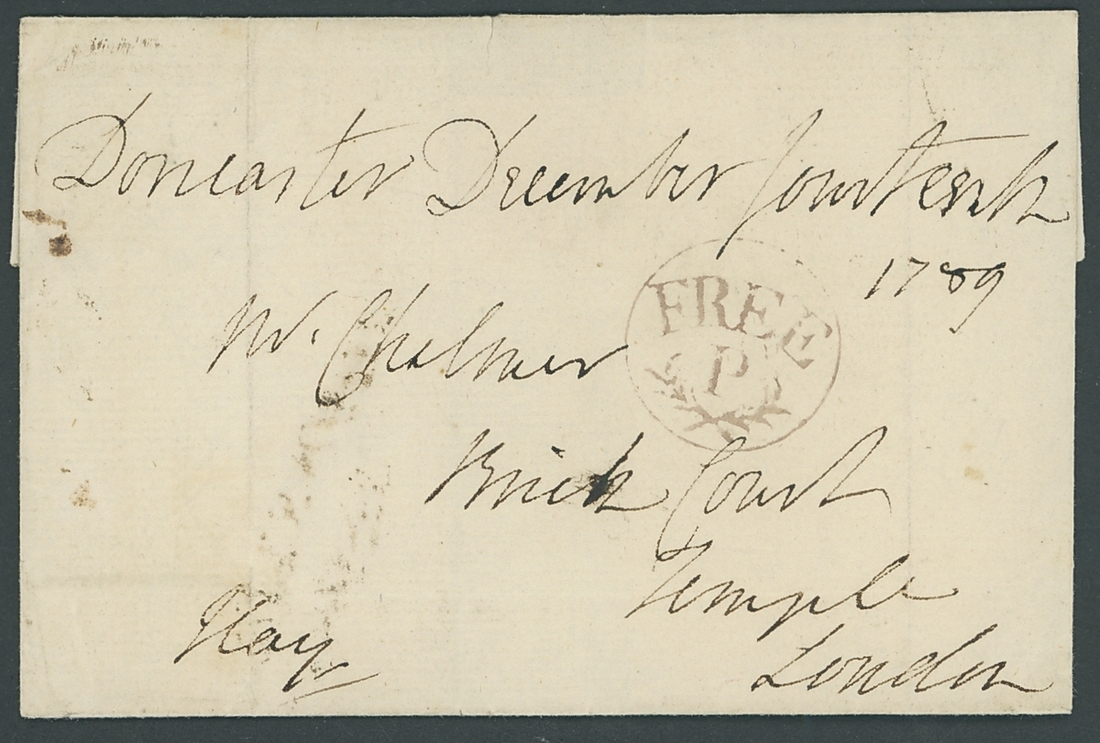 Doncaster December fourteenth
1789
Mr. Chalmer
FREE
P
Brick Court
Temple
London
Hay